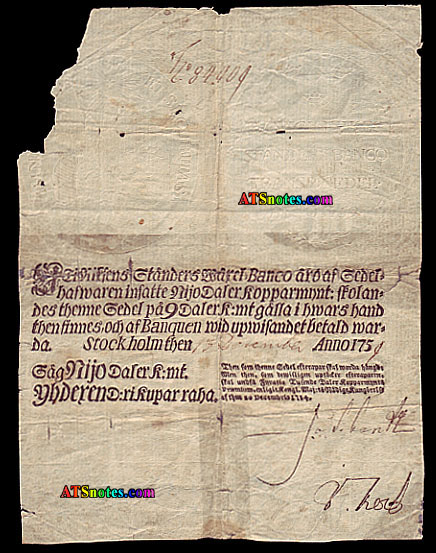 No 84,409
ATSnotes.com
ATSnotes.com
Riksens Ständers Wäxel Banco äro af Sedel-
hafwaren insatte Nijo Daler Kopparmynt: skolan-
des thenne Sedel på 9 Daler k:mt gälla i hwars hand
then finnes, och af Banquen wid upwisandet betald war-
da. Stockholm then Decemb. Anno 1759
Säg Nijo Daler k:mt.
Yhdexen D:ri kupar raha.
Then som thenne Sedel efterapar skal warda hängd:
Men then, som bewisligen uptäcker efteraparen,
skal undfå Daler Kopparmynt
af thon
ATSnotes.com